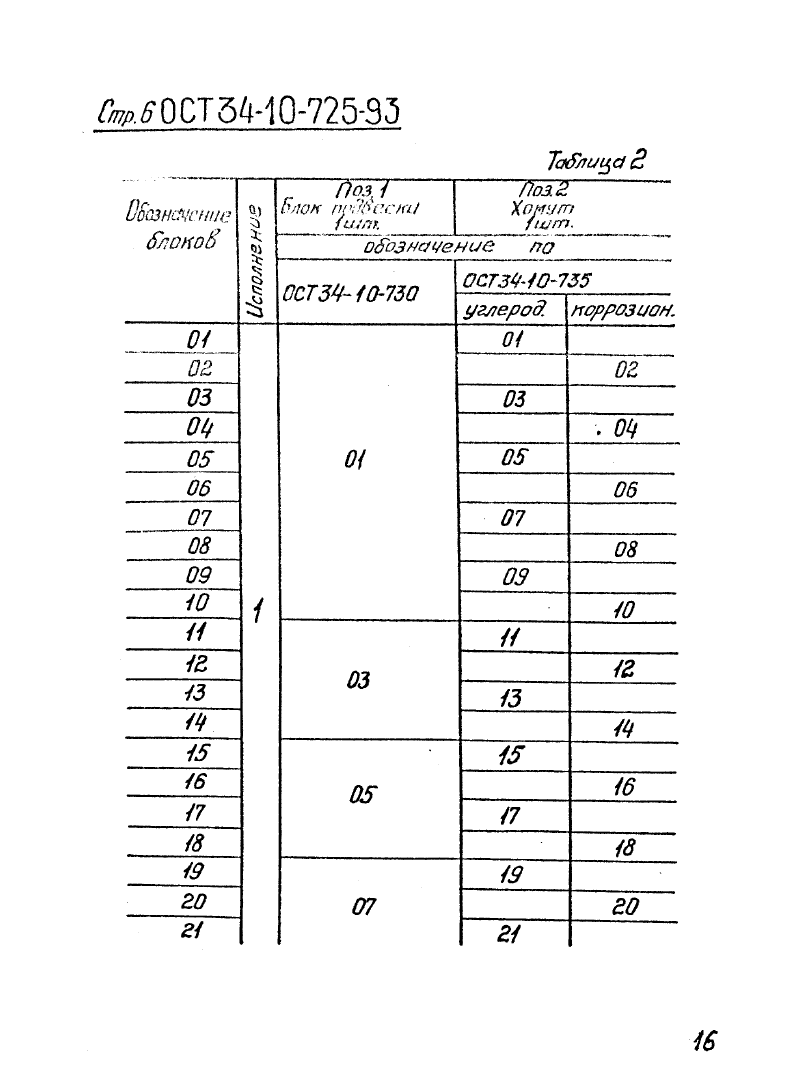 Стр.6 ОСТ 34-10-725-93
Таблица 2
Обозначение блоков
Исполнение
Поз. 1 Блок подвески 1шт.
Поз. 2 Хомут 1шт.
обозначение по
ОСТ 34-10-730
ОСТ 34-10-735
углерод. коррозион.
01 1 01 01
02 02
03 03
04 04
05 05
06 06
07 07
08 08
09 09
10 10
11 03 11
12 12
13 13
14 14
15 05 15
16 16
17 17
18 18
19 07 19
20 20
21 21
16